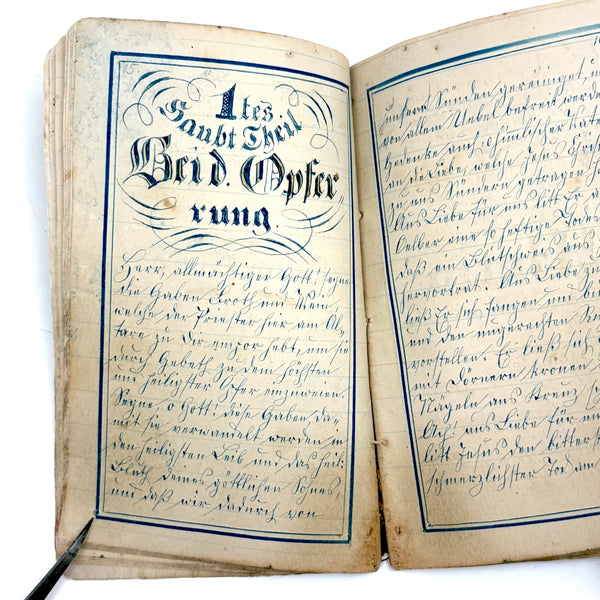 15.
1tes
Haubt Theil
Bei d. Opfer=
rung
Herr, allmächtiger Gott! segne
die Gaben Broth und Wein
welche der Priester hier am Al=
tare zu Dir empor hebt, um sie
durch Gebeth zu dem höchsten
und heiligster Opfer einzuweien.
Segne, o Gott! diese Gaben, da=
mit sie verwandelt werden in
den heiligsten Leib und das heil:
Bluth deines göttlichen Sohnes,
und daß wir dadurch von
unsern Sünden gereiniget, u
von allem Uebel befreit werde
Gedenke auch o himlischer Vate
an die Liebe, welche Jesus Chris
zu uns Sündern getragen ha
Aus Liebe für uns litt Er a
Oelber eine so heftige Todes
daß ein Blutschweis aus
hervortrat. Aus Liebe zu
ließ Er sich fangen und bi
und den ungerechten
vorstellen. Er ließ sich
mit Dörnern Kronen
Nägeln ans Kreuz
Ach! aus Liebe für
litt Jesus den bitter
schmerzlichster Tod am